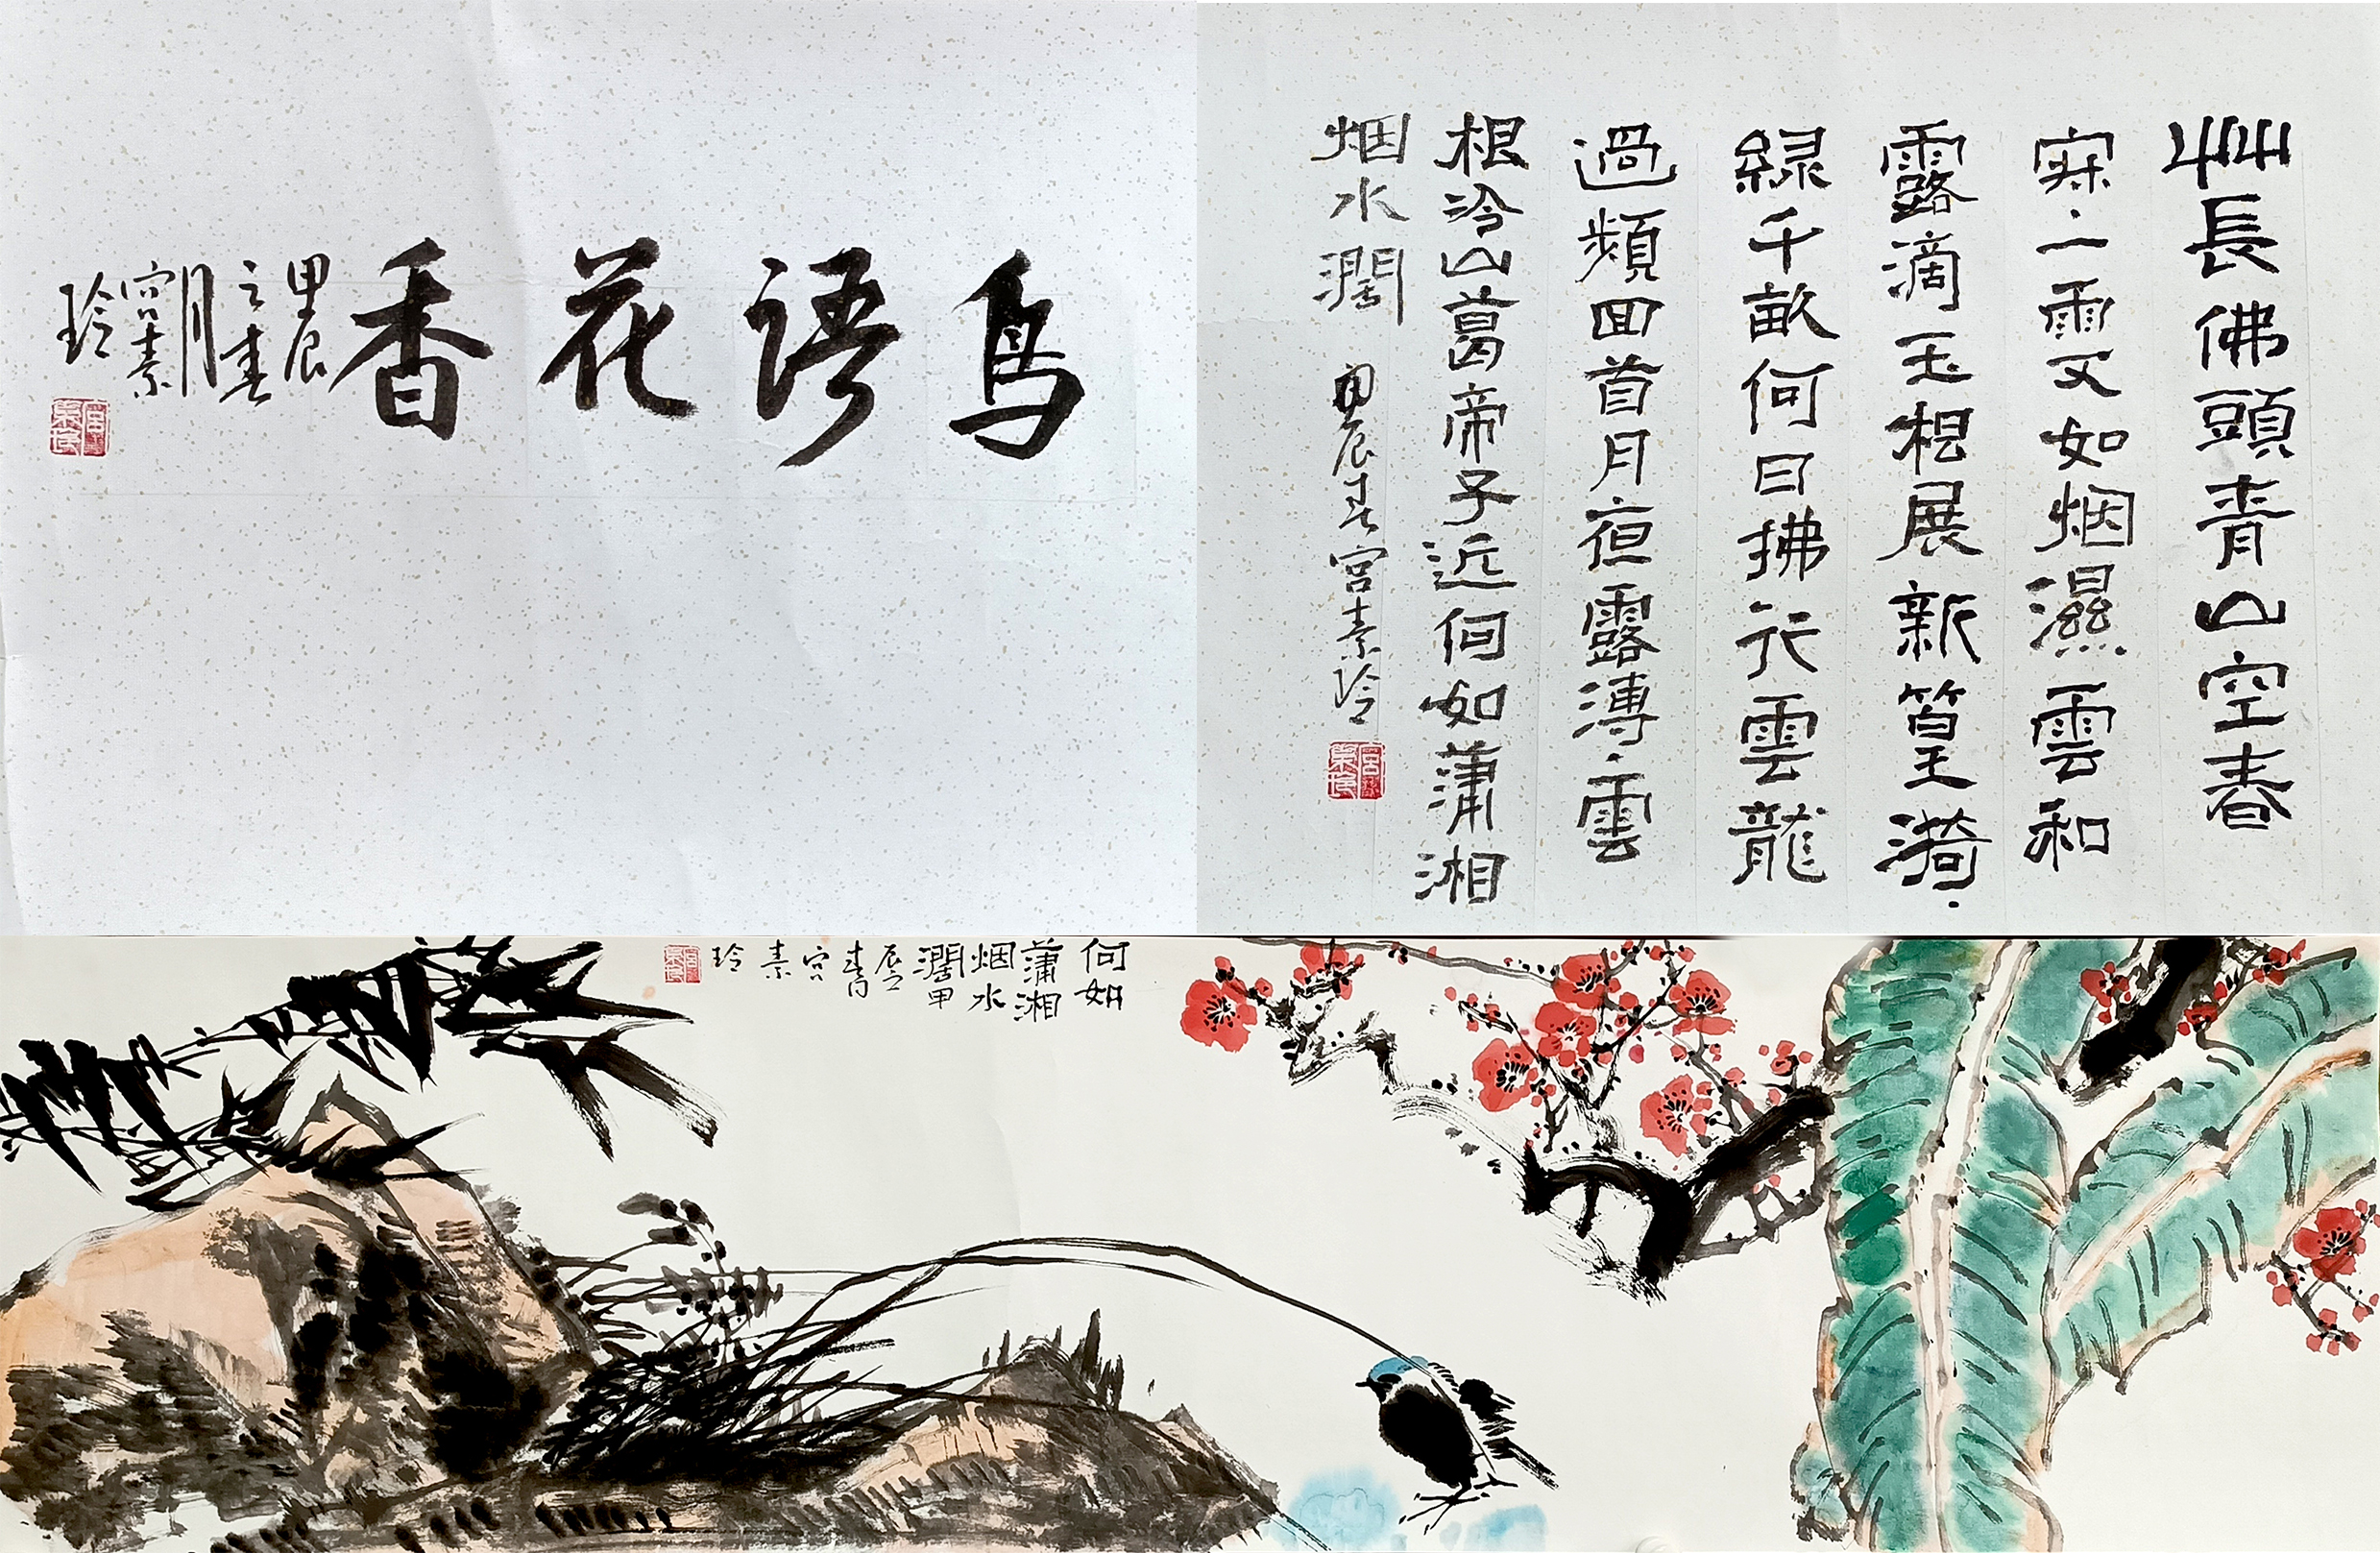 鸟语花香
甲辰
之春
月
宫素
玲
艸長佛頭青山空春
寂、一雨又如烟濕雲和
露滴玉根展新篁漪、
緑千畝何日拂行雲龍
過頻回首月夜露漙、雲
根冷山葛帝子近何如瀟湘
烟水濶 甲辰春宫素玲
何如
瀟湘
烟水
濶甲
辰之
春月
宫
素
玲